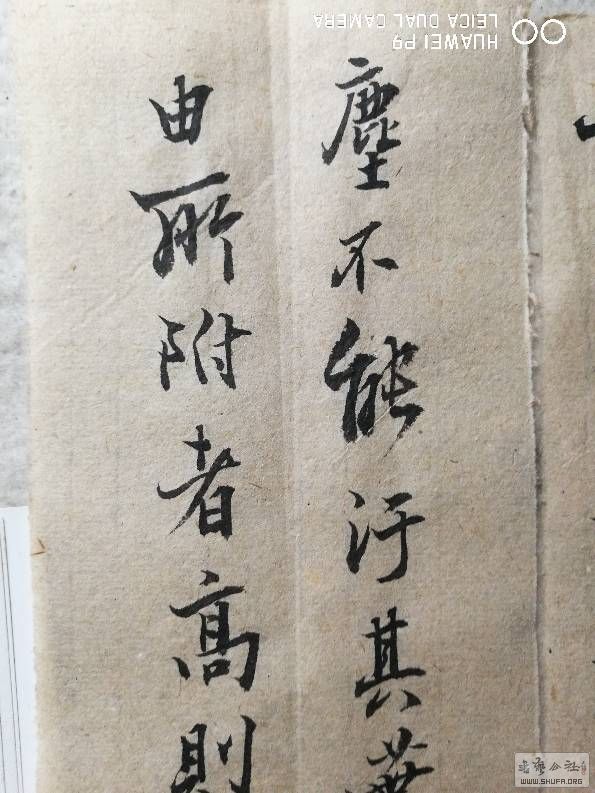 塵不能汙其葉
由所附者高則
HUAWEI P9
LEICA DUAL CAMERA
公社
WWW.SHUFA.ORG